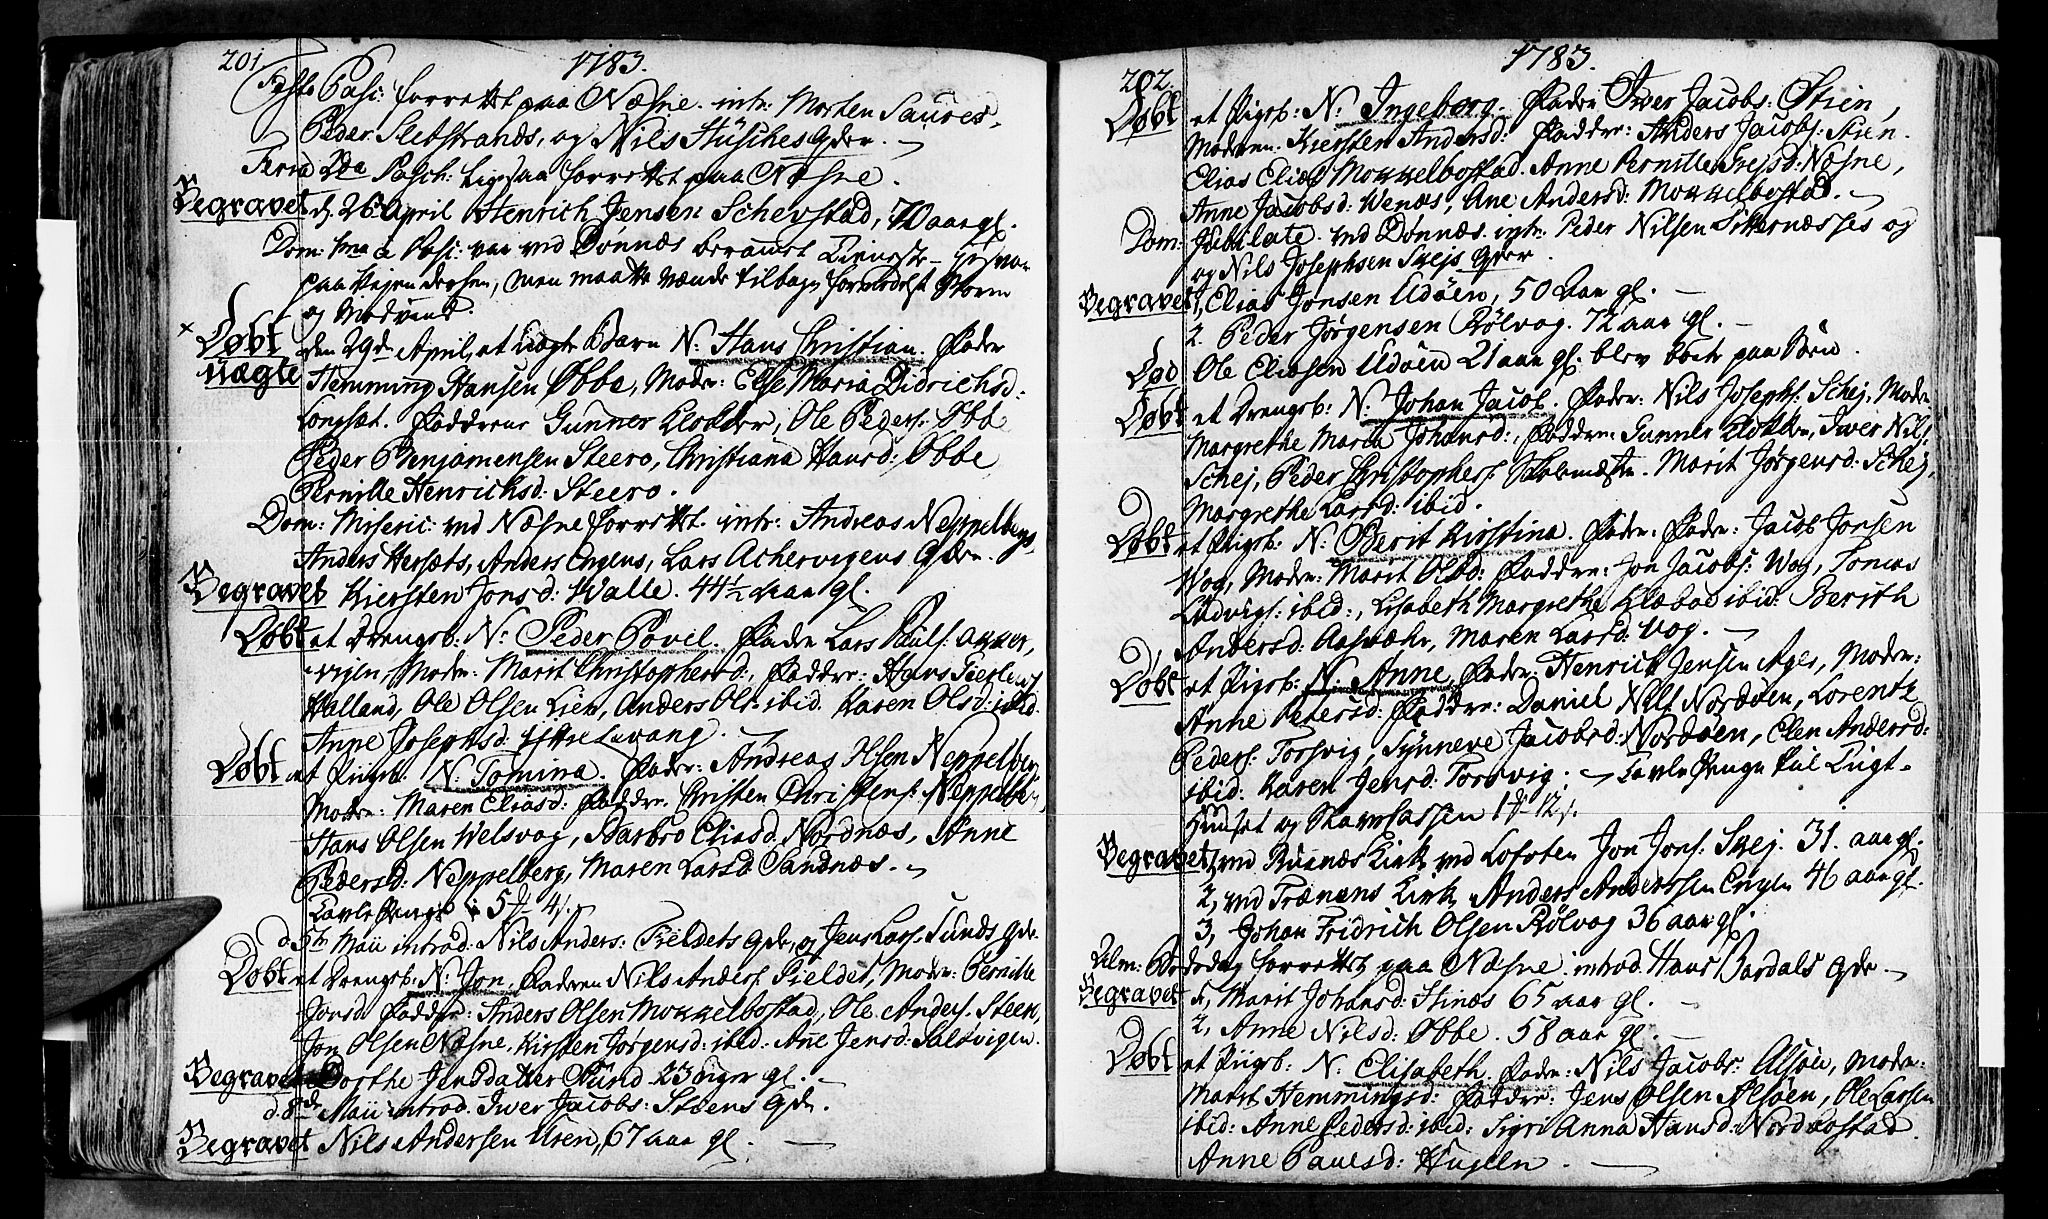 201
1783.
Festo Pasc: forrettet paa Næsne. intr: Morten Saures,
Peder Sletstrands, og Nils Hüsches Qder.
Feria 2da Pasch: ligesaa forrettet paa Næsne.
Begravet d. 26 April Henrich Jensen Schevstad, 70 aar gl.
Dom: 1ma a Pasc: var ved Dønnæs berammet
paa Hejen dersen, men maatte vende tilbage formedelst Storm
og Modvind.
× Døbt den 29de April, et uægte Barn N: Hans Christian. Fader
uægte Hemming Hansen Øbbe, Moder: Else Maria Didrichsd:
Langsæt. Faddrene Gunner Klokker, Ole Peders: Øbbe
Peder Benjamensen Steero, Christiana Hansd: Øbbe
Pernille Henrichsd: Steero.
Dom: Miseric: ved Næsne forrettet. intr: Andreas Neppelbergs,
Anders Hersæts, Anders Engens, Lars Achervigens Qder.
Begravet Kiersten Jonsd: Walle. 44½ aar gl.
Døbt et Drengeb: N: Peder Povel. Fader Lars Pauls: Akker,
vigen, Moder: Marit Christophersd:, Faddre: Hans
Halland, Ole Olsen Lien, Anders Ols: ibid. Karen Olsd: ibid.
Anne Josephsd: Levang.
Døbt et Pigeb: N: Tomina. Fader: Andreas Olsen Neppelberg,
Moder: Maren Eliasd: Faddre: Christen Christens: Neppelberg,
Hans Olsen Welsvog, Barbro Eliasd: Nordnæs, Anne
Pedersd: Neppelberg, Maren Larsd: Sandnæs.
Tavle Penge 5 4 s.
d. 5te Maii introd: Nils Anders: Fieldets Qde, og Jens Lars: Sunds Qde.
Døbt et Drengeb: N: Jon. Faderen Nils Anders: Fieldet, Moder: Pernille
Jonsd: Faddre: Anders Olsen Mokkelbostad, Ole Anders: Steen,
Jon Olsen Næsne, Kirsten Jørgensd: ibid: Aññe Jensd: Saltvigen.
Begravet Dorthe Jensdatter Sund 23 uger gl.
d. 8de Maii introd. Iwer Jacobs: Steens Qde.
Begravet Nils Andersen Usen, 67 aar gl.
202
1783.
Døbt et Pigeb: N: Ingeborg. Fader Iwer Jacobs: Stien,
Moderen: Kiersten Andersd: Faddre: Anders Jacobs: Stien.
Elias Elias: Mokkelbostad. Anne Pernille Næsne,
Anne Jacobsd: Wenæs, Ane Andersd: Mokkelbostad.
Dom: Jubilate. ved Dønnæs. intr: Peder Nilsen Sitternæsses og
og Nils Josephsen Skejs Qder.
Begravet 1, Elias Jonsen Udøen, 50 aar gl.
2. Peder Jørgensen Rølvog. 72 aar gl.
Død Ole Eliasen Udøen 21 aar gl. blev borte paa Søen.
Døbt et Drengeb: N: Johan Jacob. Fader: Nils Josephs: Schej, Moder
Margrethe Maria Johansd:, Faddre: Gunner Klokker, Iwer Nils:
Schej, Peder Christophers: Skolemester. Marit Jørgensd: Schej,
Margrethe Larsd: ibid.
Døbt et Pigeb: N: Berit Kirstina. Fader: Fader: Jacob Jonsen
Wog, Moder: Marit Olsd: Faddre: Jon Jacobs: Wog, Tomas
Ludvigs: ibid:, Lisabeth Margrethe Klæboe ibid: Berith
Andersd: Aasvæhr, Maren Larsd: Vog.
Døbt et Pigeb: N: Anne. Fader: Henrich Jensen Ager, Moder:
Anne Petersd: Faddre: Daniel Nils: Nordøen, Lorentz
Peders: Torsvig, Synneve Jacobsd: Nordøen, Elen Andersd:
ibid: Karen Jensd: Torsvig. Tavle Penge til Tugt-
Huuset og Skovkassen 1 12 s.
Begravet 1, ved Rusnæs Kirke ved Lofoten Jon Jons: Skej. 31. aar gl.
2, ved Trænens Kirke Anders Anderssen Engen 46 aar gl.
3, Johan Fridrich Olsen Rølvog 36 aar gl.
Alm: Bededag forrettet paa Næsne. introd. Hans Bardals Qde
Begravet 1, Marit Johansd: Stinæs 65 aar gl.
2, Anne Nilsd: Øbbe. 58 aar gl.
Døbt et Pigeb: N: Elisabeth. Fader: Nils Jacobs: Alsøen, Moder:
Marit Hemmingsd: Faddre: Jens Olsen Alsøen, Ole Larsen
ibid: Anne Pedersd: ibid: Sigri Anna Hansd: Nordbostad.
Anne Paulsd: Hugeln.